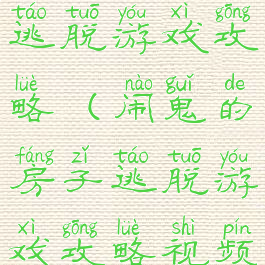 táo tuō yóu xì gōng
逃脱游戏攻
lüè nào guǐ de
略（闹鬼的
fáng zǐ táo tuō yóu
房子逃脱游
xì gōng lüè shì pín
戏攻略视频